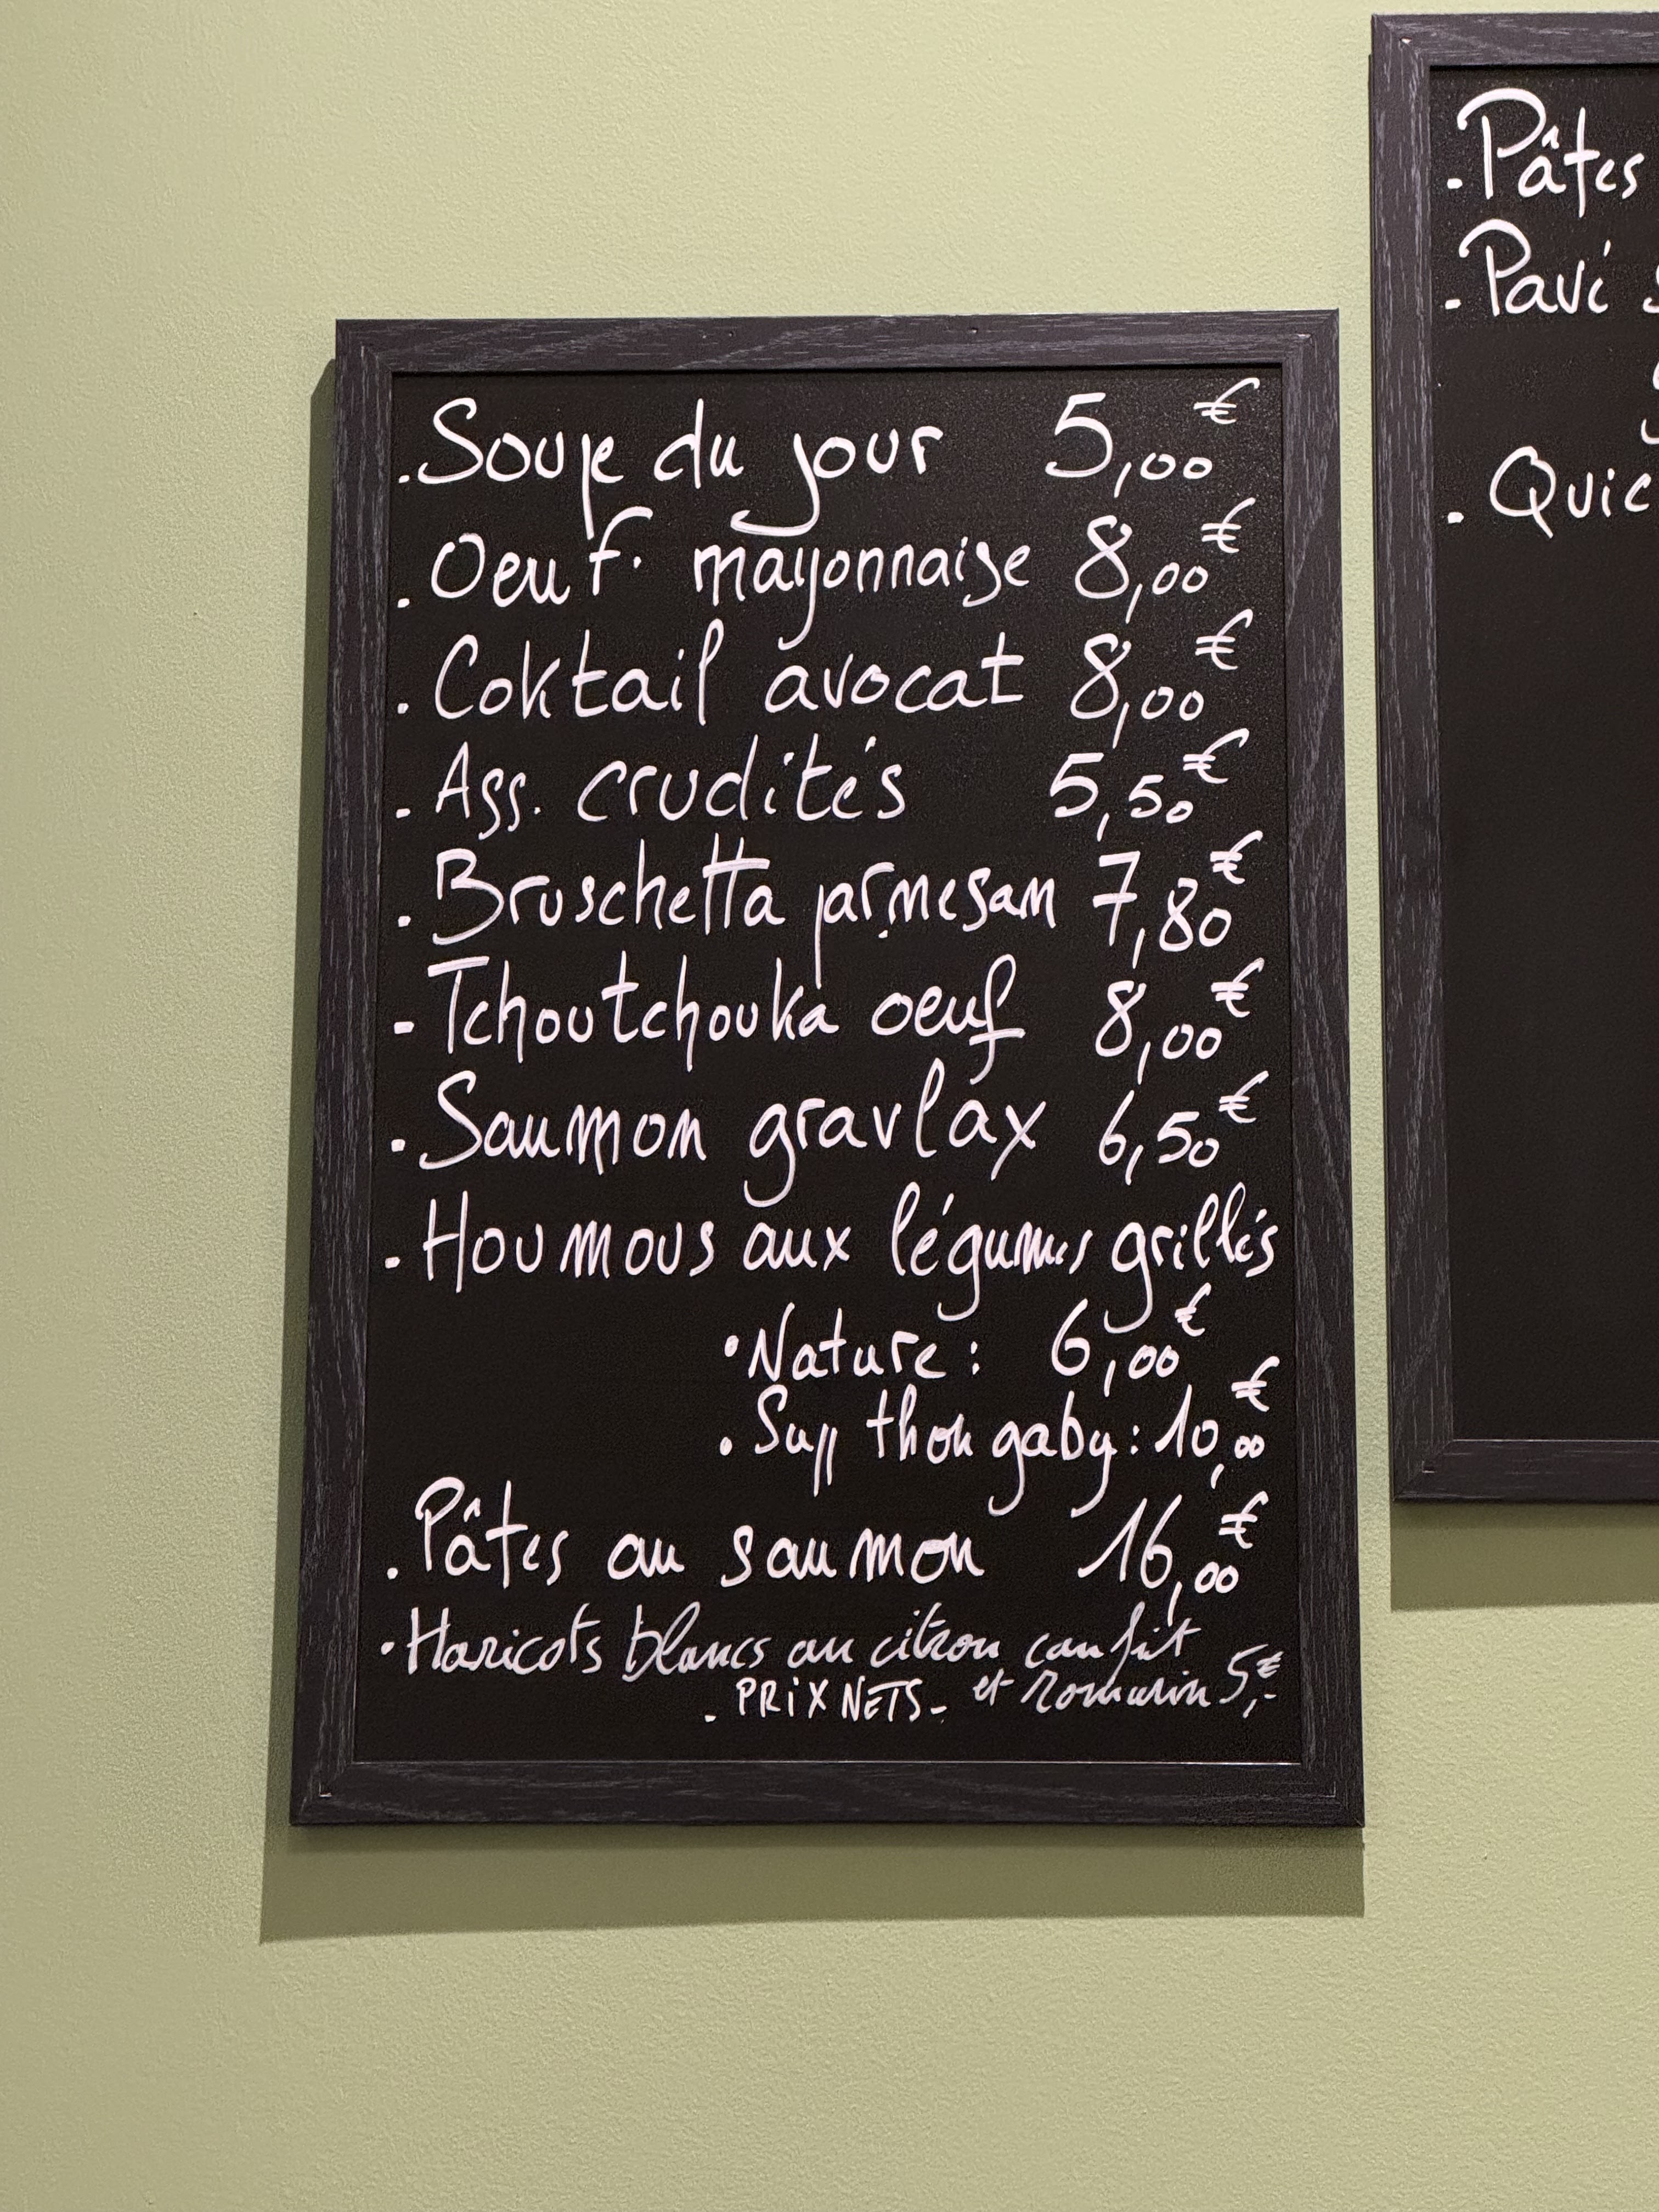 .Soupe du jour 5,00€
.Oeuf. mayonnaise 8,00€
.Coktail avocat 8,00€
.Ass. crudités 5,50€
.Bruschetta parmesan 7,80€
-Tchoutchouka oeuf 8,00€
.Saumon gravlax 6,50€
.Houmous aux légumes grillés
.Nature: 6,00€
.Supp thon gaby: 10,00€
.Pâtes au saumon 16,00€
.Haricots blancs au citron confit
et romarin 5,-€
. PRIX NETS-
.Pâtes
.Pavé
.Quic